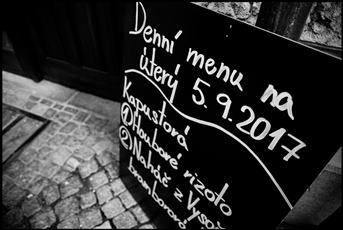 Denní menu na
úterý 5.9.2017
Kapustová
① Houbové rizoto
② Naháč z Vysoč
bramborová